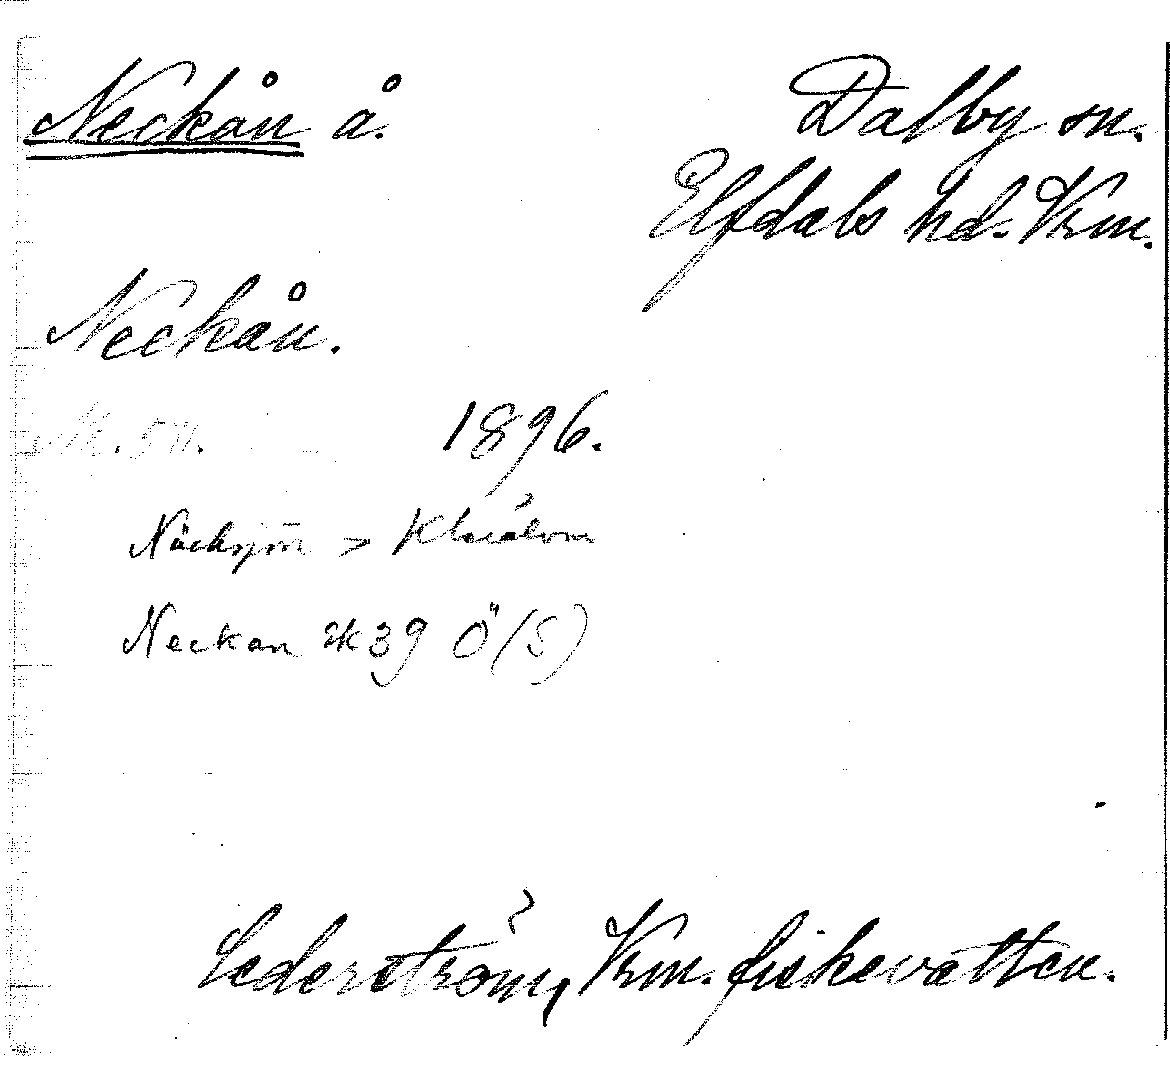 Neckån å. Dalby sn.
Elfdals hd. Vrm.
Neckån.
1896.
Näcksjön > Klarälven
Neckan Ek 39 Ö (S)
Cederström, Vrm. fiskevatten.